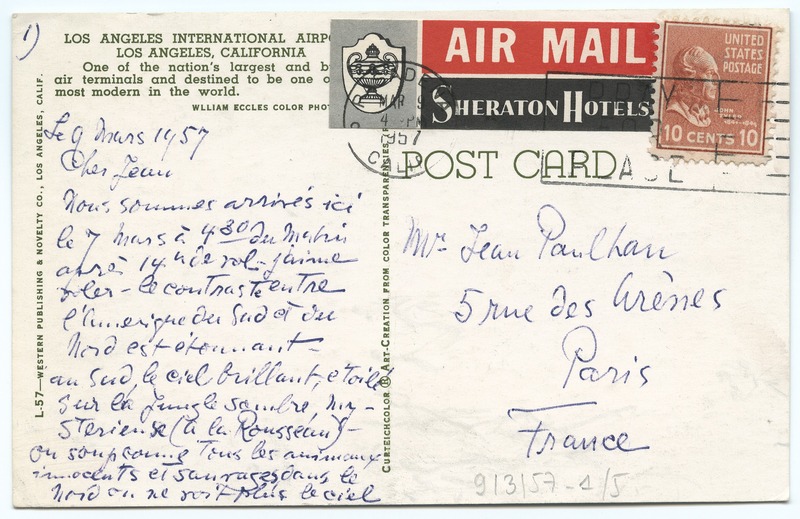 1)
LOS ANGELES INTERNATIONAL AIRPO
LOS ANGELES, CALIFORNIA
One of the nation's largest and b
air terminals and destined to be one o
most modern in the world.
WLLIAM ECCLES COLOR PHOT
Le 9 Mars 1957
Cher Jean
Nous sommes arrivés ici
le 7 Mars à 4.30 du Matin
après 14h de vol - j'aime
voler - le contraste entre
l'Amerique du Sud et du
Nord est étonnant -
au Sud, le ciel brillant, étoilé
sur la jungle sombre, my-
sterieuse (à la Rousseau) -
on soupconne tous les animaux
innocents et sauvages dans le
Nord on ne voit plus le ciel
L-57—WESTERN PUBLISHING & NOVELTY CO., LOS ANGELES, CALIF.
CURTEICHCOLOR ® ART-CREATION FROM COLOR TRANSPARENCIES
AIR MAIL
SHERATON HOTELS
MAR 9
4 PM
1957
CALIF
UNITED
STATES
POSTAGE
JOHN
TYLER
1841-1845
10 CENTS 10
POST CARD
Mr Jean Paulhan
5 rue des Arènes
Paris
France
9/3/57-1/5